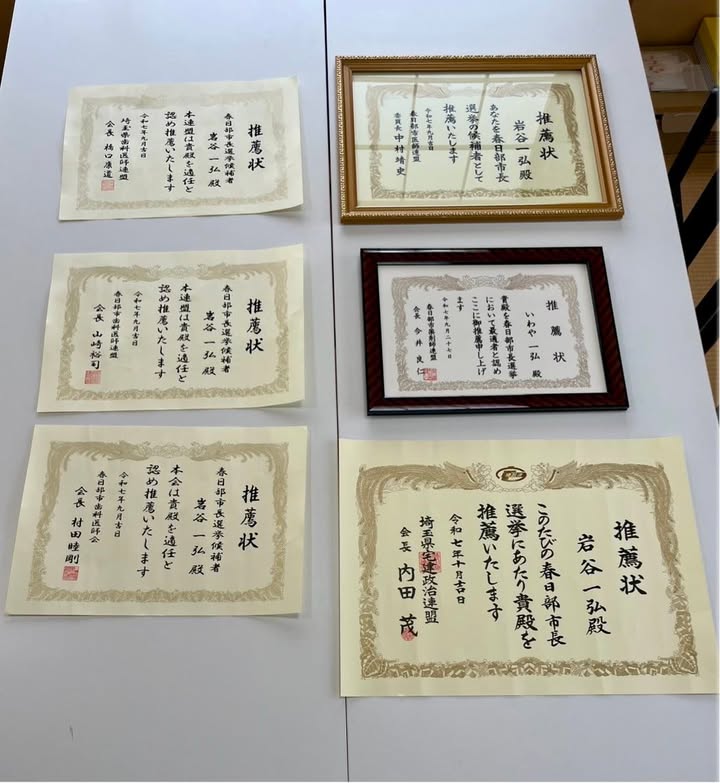 推薦状
春日部市長選挙候補者
岩谷 一弘 殿
本連盟は貴殿を適任と
認め推薦いたします
令和七年九月吉日
埼玉県歯科医師連盟
会長 橋口康道
推薦状
岩谷 一弘殿
あなたを春日部市長
選挙の候補者として
推薦いたします
令和七年九月吉日
春日部市医師連盟
委員長 中村靖史
推薦状
春日部市長選挙候補者
岩谷 一弘 殿
本連盟は貴殿を適任と
認め推薦いたします
令和七年九月吉日
春日部市歯科医師連盟
会長 山崎裕司
推薦状
いわや 一弘 殿
貴殿を春日部市長選挙
において最適者と認め
ここに御推薦申し上げ
ます
令和七年九月二十七日
春日部市薬剤師連盟
会長 今井良仁
推薦状
春日部市長選挙候補者
岩谷 一弘 殿
本会は貴殿を適任と
認め推薦いたします
令和七年九月吉日
春日部市歯科医師会
会長 村田睦剛
推薦状
岩谷一弘殿
このたびの春日部市長
選挙にあたり貴殿を
推薦いたします
令和七年十月吉日
埼玉県宅建政治連盟
会長 内田 茂